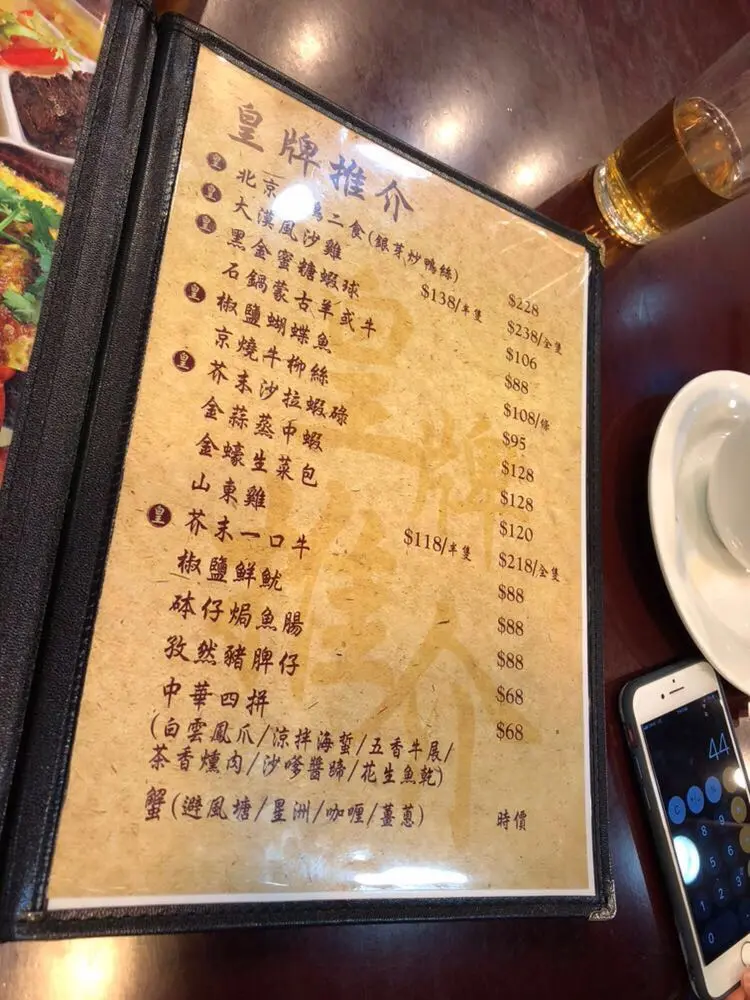 皇牌推介
皇 北京 鴨二食(銀芽炒鴨絲) $228
皇 大漠風沙雞 $138/半隻 $238/全隻
皇 黑金蜜糖蝦球 $106
石鍋蒙古羊或牛 $88
皇 椒鹽蝴蝶魚 $108/條
京燒牛柳絲 $95
皇 芥末沙拉蝦碌 $128
金蒜蒸中蝦 $128
金蠔生菜包 $120
山東雞 $118/半隻 $218/全隻
皇 芥末一口牛 $88
椒鹽鮮魷 $88
砵仔焗魚腸 $88
孜然豬脾仔 $68
中華四拼 $68
(白雲鳳爪/涼拌海蜇/五香牛展/
茶香燻肉/沙嗲醬蹄/花生魚乾)
蟹(避風塘/星洲/咖喱/薑蔥) 時價
皇牌推介
44